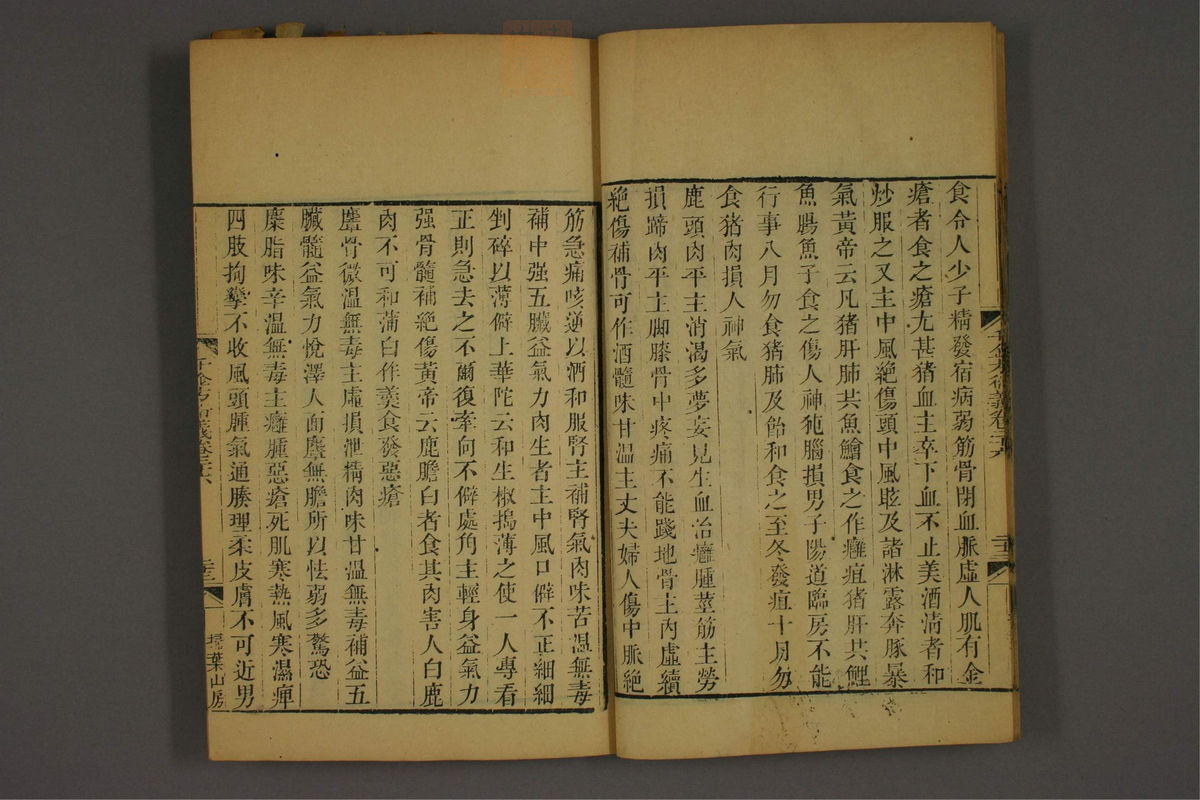 食令人少子精發宿病弱筋骨閉血脈虛人肌有金
瘡者食之瘡尤甚猪血主卒下血不止美酒清者和
炒服之又主中風絶傷頭中風眩及諸淋露奔豚暴
氣黃帝云凡猪肝肺共魚鱠食之作癰疽猪肝共鯉
魚腸魚子食之傷人神㹠腦損男子陽道臨房不能
行事八月勿食猪肺及飴和食之至冬發疽十月勿
食猪肉損人神氣
鹿頭肉平主消渴多夢妄見生血治癰腫莖筋主勞
損蹄肉平主脚膝骨中疼痛不能踐地骨主內虛續
絶傷補骨可作酒髓味甘温主丈夫婦人傷中脈絶
筋急痛咳逆以酒和服腎主補腎氣肉味苦温無毒
補中强五臟益氣力肉生者主中風口僻不正細細
剉碎以薄僻上華陀云和生椒搗薄之使一人專看
正則急去之不爾復牽向不僻處角主輕身益氣力
强骨髓補絶傷黃帝云鹿膽白者食其肉害人白鹿
肉不可和蒲白作羹食發惡瘡
麞骨微温無毒主虛損泄精肉味甘温無毒補益五
臟髓益氣力悅澤人面麞無膽所以怯弱多驚恐
麋脂味辛温無毒主癰腫惡瘡死肌寒熱風寒濕痺
四肢拘攣不收風頭腫氣通腠理柔皮膚不可近男
千金方衍義卷二十六
二十三
掃葉山房